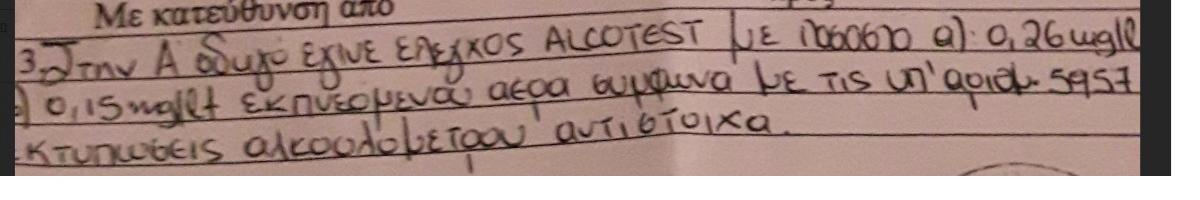 Με κατεύθυνση από
3. Στην Α οδηγό έγινε έλεγχος ALCOTEST με ποσοστό α). 0,26 mg/l
) 0,15 mg/lt εκπνεομενα αερα συμφωνα με τις υπ' αριθμ. 5957
εκτυπωσεις αλκοολομετρου αντιστοιχα.